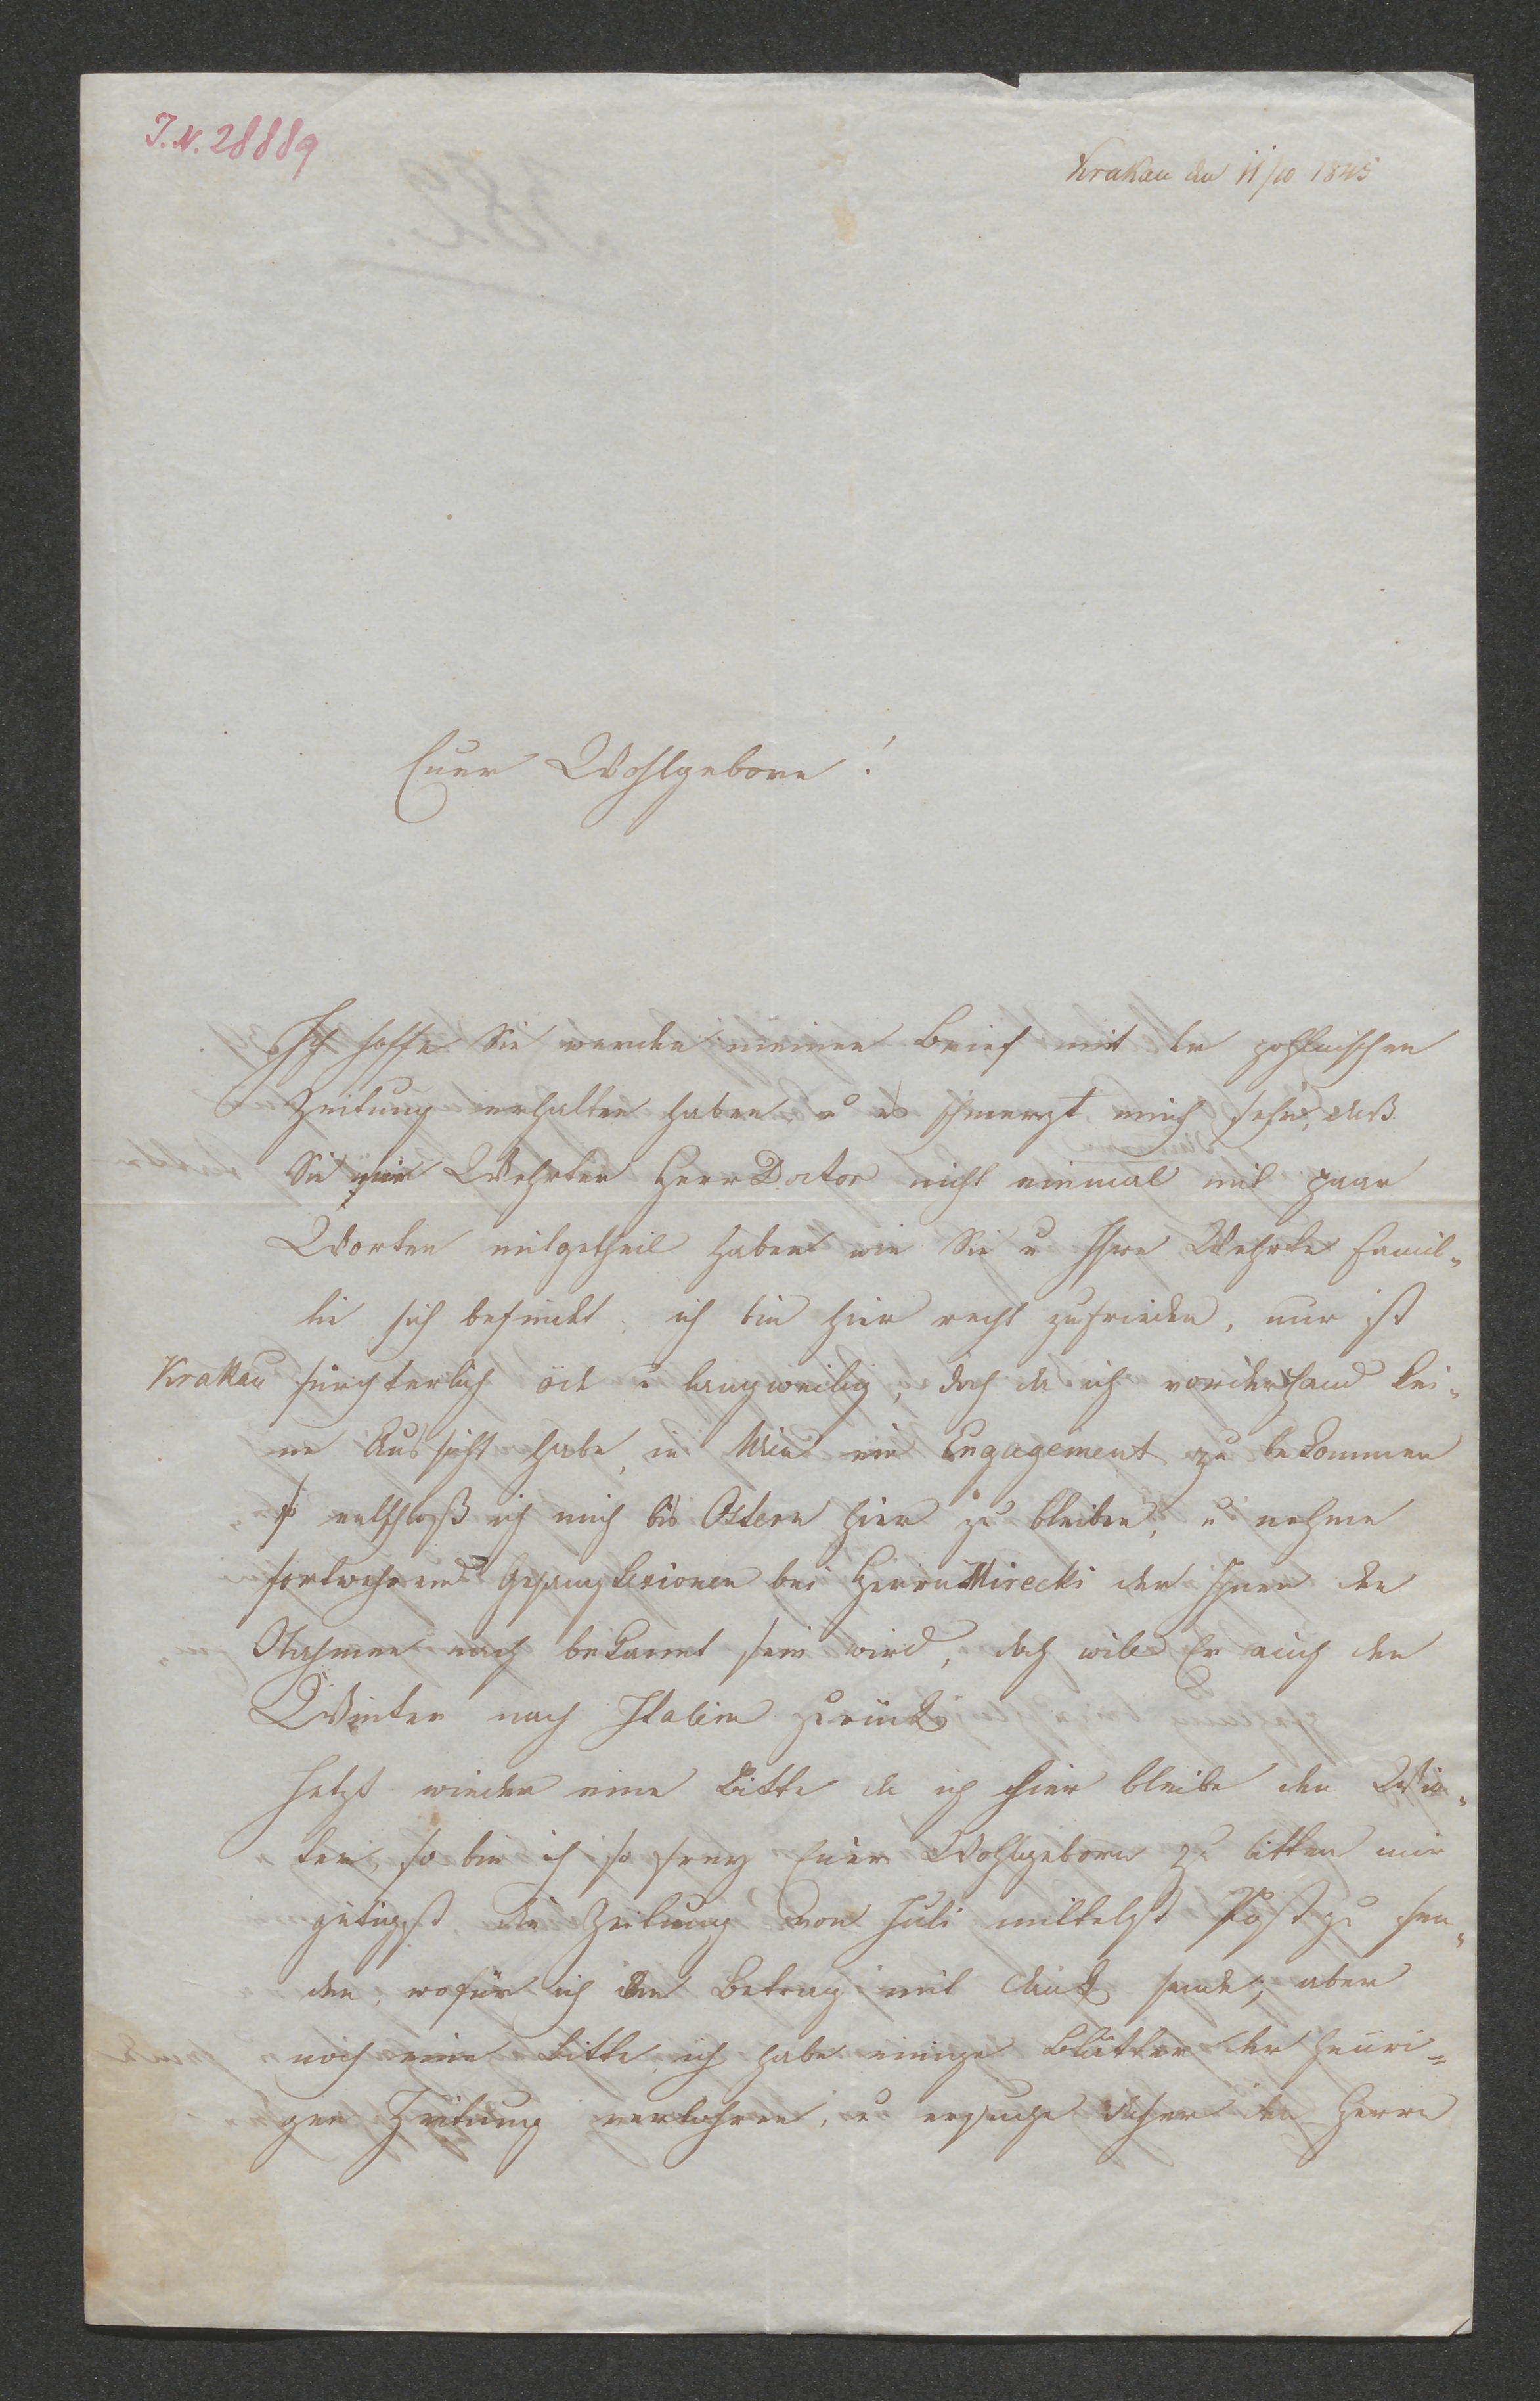 I.N. 28889
Krakau den 11/10 1845
Euer Wohlgeborn!
Ich hoffe Sie werden meinen Brief mit der pohlnischen
Zeitung erhalten haben u es schmerzt mich sehr, daß
Sie mir Wehrter Herr Doctor nicht einmal mit paar
Worten mitgetheil haben wie Sie u Ihre Wehrte Famil-
lie sich befindet. ich bin hier recht zufrieden, nur ist
Krakau fürchterlich öde u langweilig, doch da ich vorderhand kei-
ne Aussicht habe, in Wien ein Engagement zu bekommen
so entschloß ich mich bis Ostern hier zu bleiben, u nehme
fortwehrend Gesang Lexionen bei Herrn Mirecki der Ihnen den
Nahmen nach bekannt sein wird, doch will Er auch den
Winter nach Italien zurück
Jetzt wieder eine Bitte da ich hier bleibe den Win-
ter, so bin ich so frey Euer Wohlgeborn zu bitten mir
gütigst die Zeitung von Juli mittelst Post zu sen-
den, wofür ich den Betrag mit Dank sende; aber
noch eine Bitte, ich habe einige Blätter der heuri-
gen Zeitung verlohren, u ersuche daher den Herrn